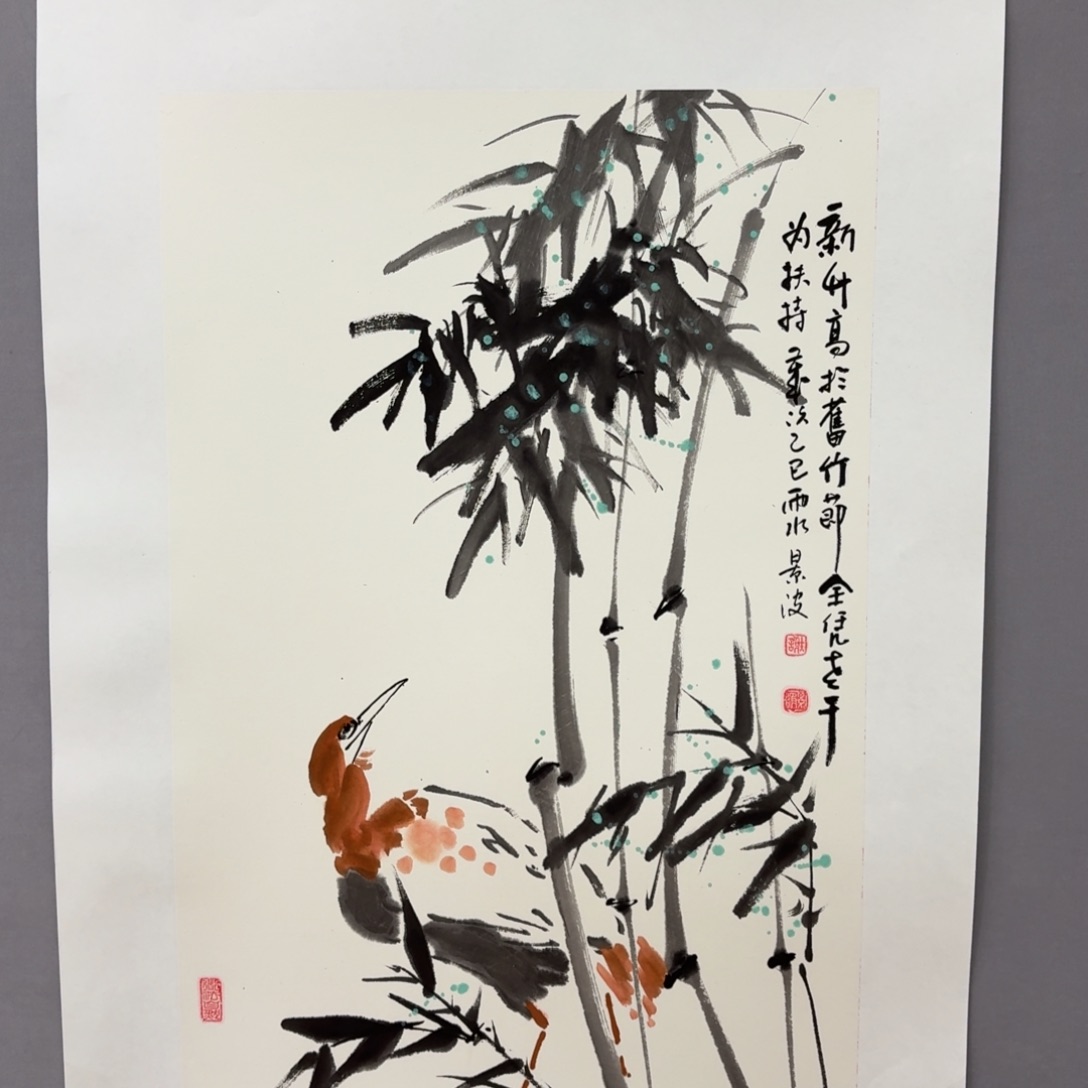 新竹高於舊竹節全凭老干
为扶持 歲次乙巳雨水 景波